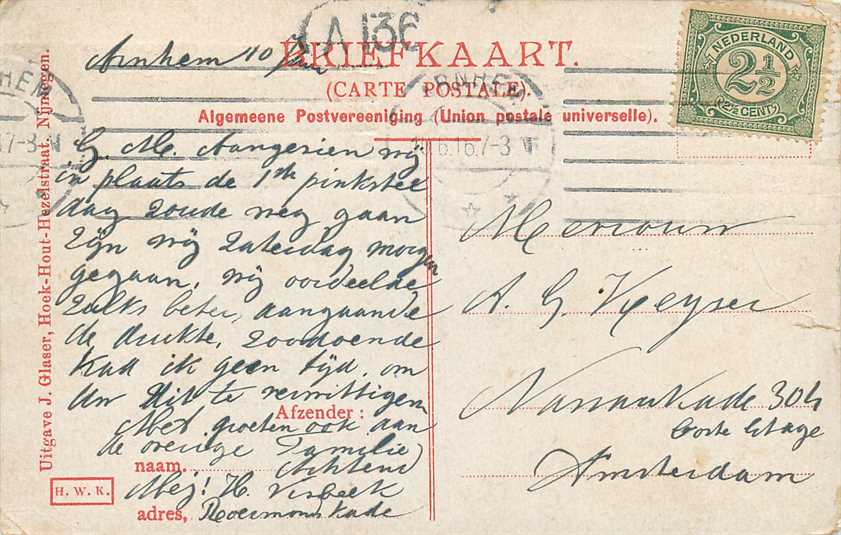 A 136
Arnhem 10/
BRIEFKAART.
(CARTE POSTALE).
Algemeene Postvereeniging (Union postale universelle).
NEDERLAND
2½
(2½ CENT)
ARNHEM
6.16.7-3 V
G. M. Aangezien wij
in plaats de 1ste pinkster
dag zoude weg gaan
Zijn wij Zaterdag morgen
gegaan, wij oordeelde
zulks beter, aangaande
de drukte, zoodoende
had ik geen tijd, om
Uw dit te
Met groeten ook aan
de overige Familie
Afzender:
Achtend
naam.
Mej! H. Visbeek
adres, Roermondskade
Mevrouw
A. G. Keyser
Nassaukade 304
Eerste Etage
Amsterdam
Uitgave J. Glaser, Hoek-Hout-Hezelstraat, Nijmegen.
H. W. K.